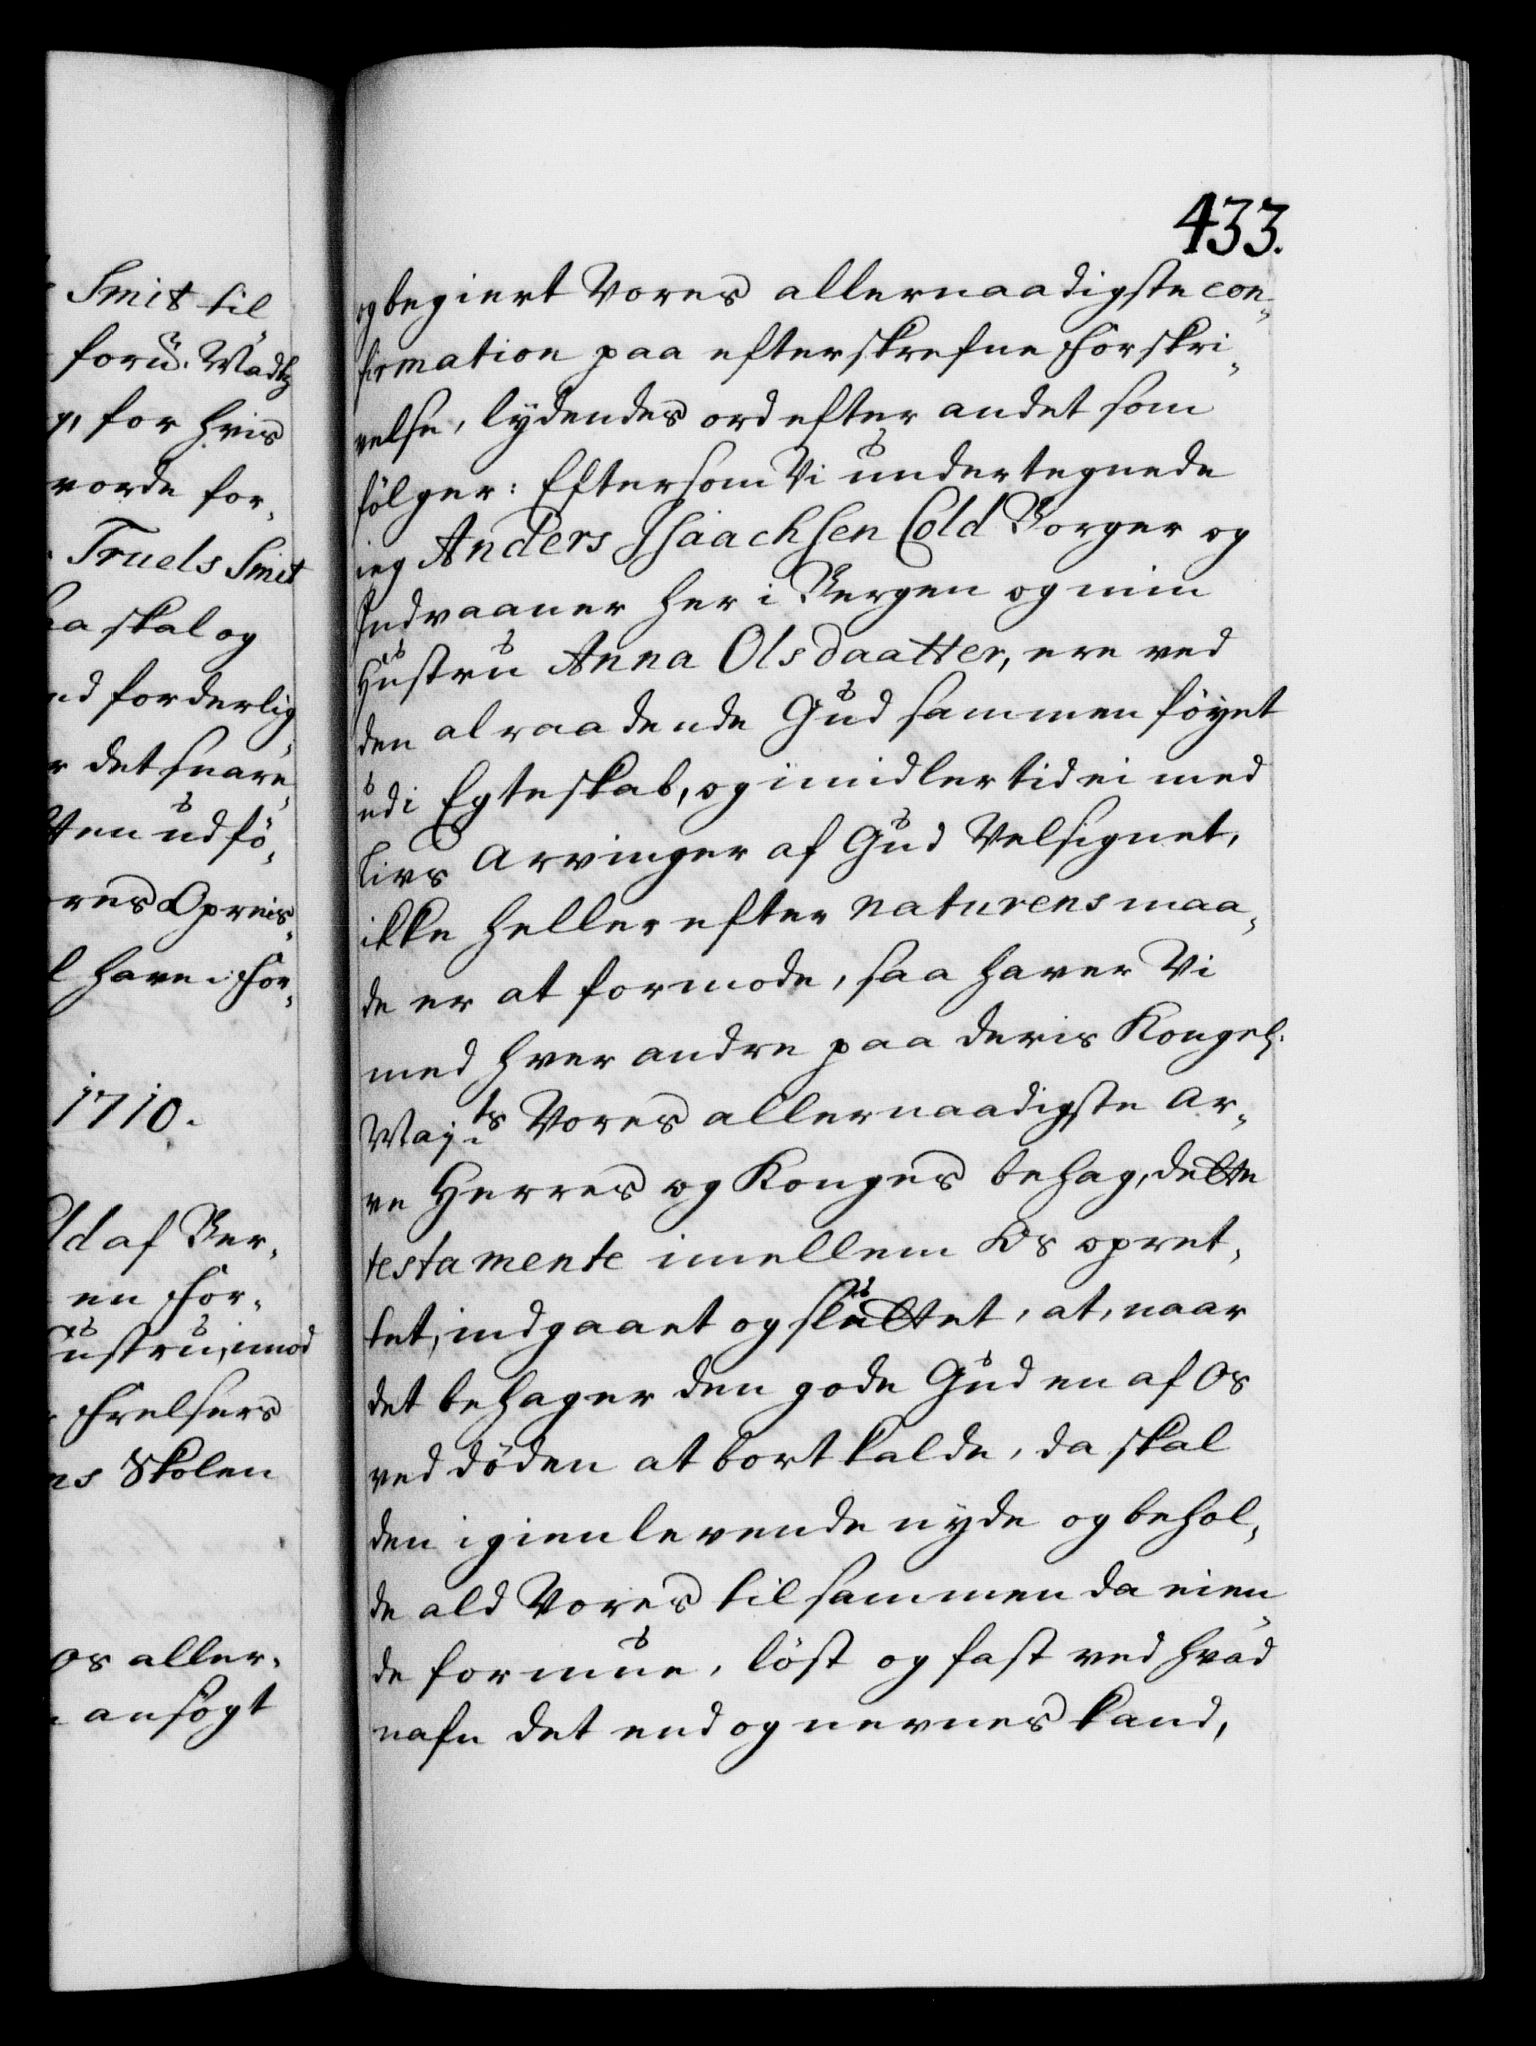 Smit til
for hvis
vorde for-
Truels Smit
skal og
forderlig
det snare-
udfö-
res Opreis-
have i For-
1710.
af Ber-
en For-
ustru, imod
Frelsers
Skolen
os aller-
ansögt
433.
og begiert Vores allernaadigste con-
firmation paa efterskrefne Forskri-
velse, lydendes ord efter andet som
fölger: Eftersom Vi undertegnede
ieg Anders Isaachsen Cold Borger og
Indvaaner her i Bergen og min
Hustru Anna Olsdaatter, ere ved
den alraadende Gud sammenföyet
udi Egteskab, og imidlertid ei med
Livs Arvinger af Gud Velsignet,
ikke heller efter naturens maa-
de er at formode, saa haver Vi
med hverandre paa deris Kongel:
Maj:ts Vores allernaadigste Ar-
ve Herres og Konges behag, dette
testamente imellem Os opret-
tet, indgaaet og sluttet, at, naar
det behager den gode Gud en af Os
ved döden at bortkalde, da skal
den igienlevende nyde og behol-
de ald Vores tilsammen da eien-
de formue, löst og fast ved hvad
nafn det end og nevnes kand,